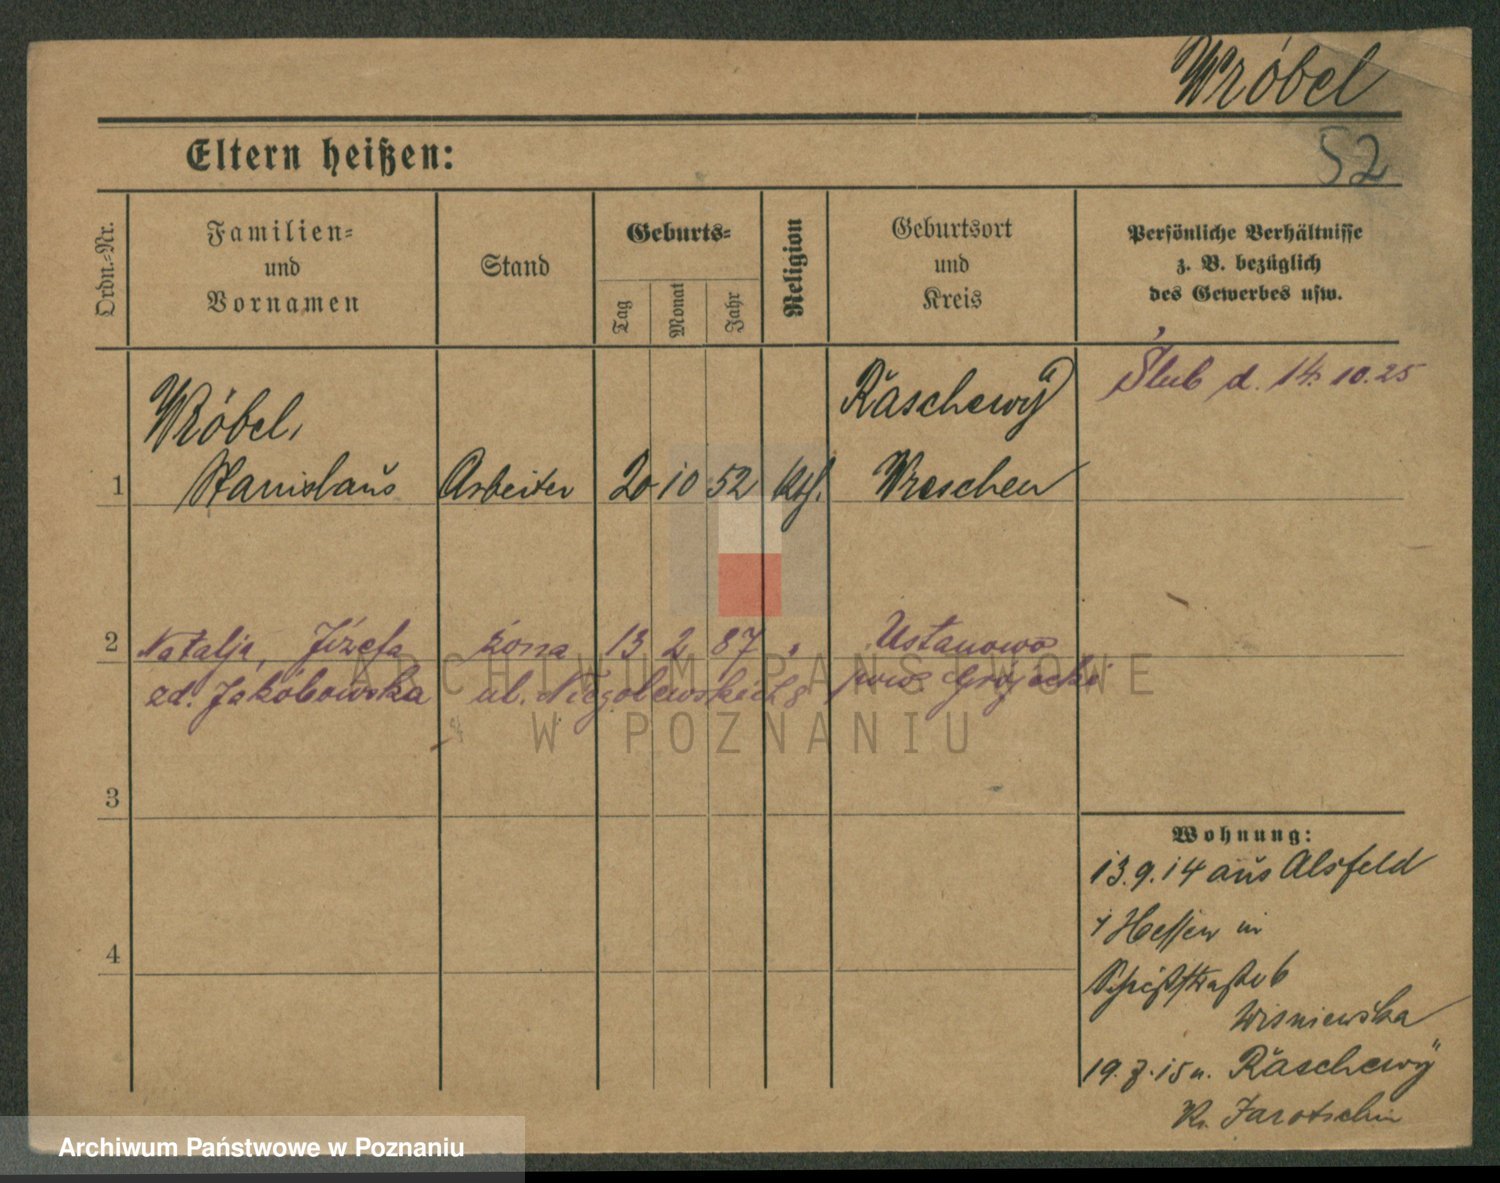 Wróbel
Eltern heißen:
52
Ordn.-Nr.
Familien-
und
Vornamen
Stand
Geburts-
Tag
Monat
Jahr
Religion
Geburtsort
und
Kreis
Persönliche Verhältnisse
z. B. bezüglich
des Gewerbes usw.
Ślub d. 14.10.25
Wróbel,
Raschewy
1 Stanislaus Arbeiter 20 10 52 Kth. Wreschen
2 Natalja, Józefa żona 13 2 87 " Ustanowo
zd. Jakóbowska ul. Niegolewskich 8 pow. Grójecki
ARCHIWUM PAŃSTWOWE
W POZNANIU
3
4
Wohnung:
13.9.14 aus Alsfeld
i/Hessen in
6
Wisniewska
19.7.15 n. Raschewy
Kr. Jarotschin
Archiwum Państwowe w Poznaniu